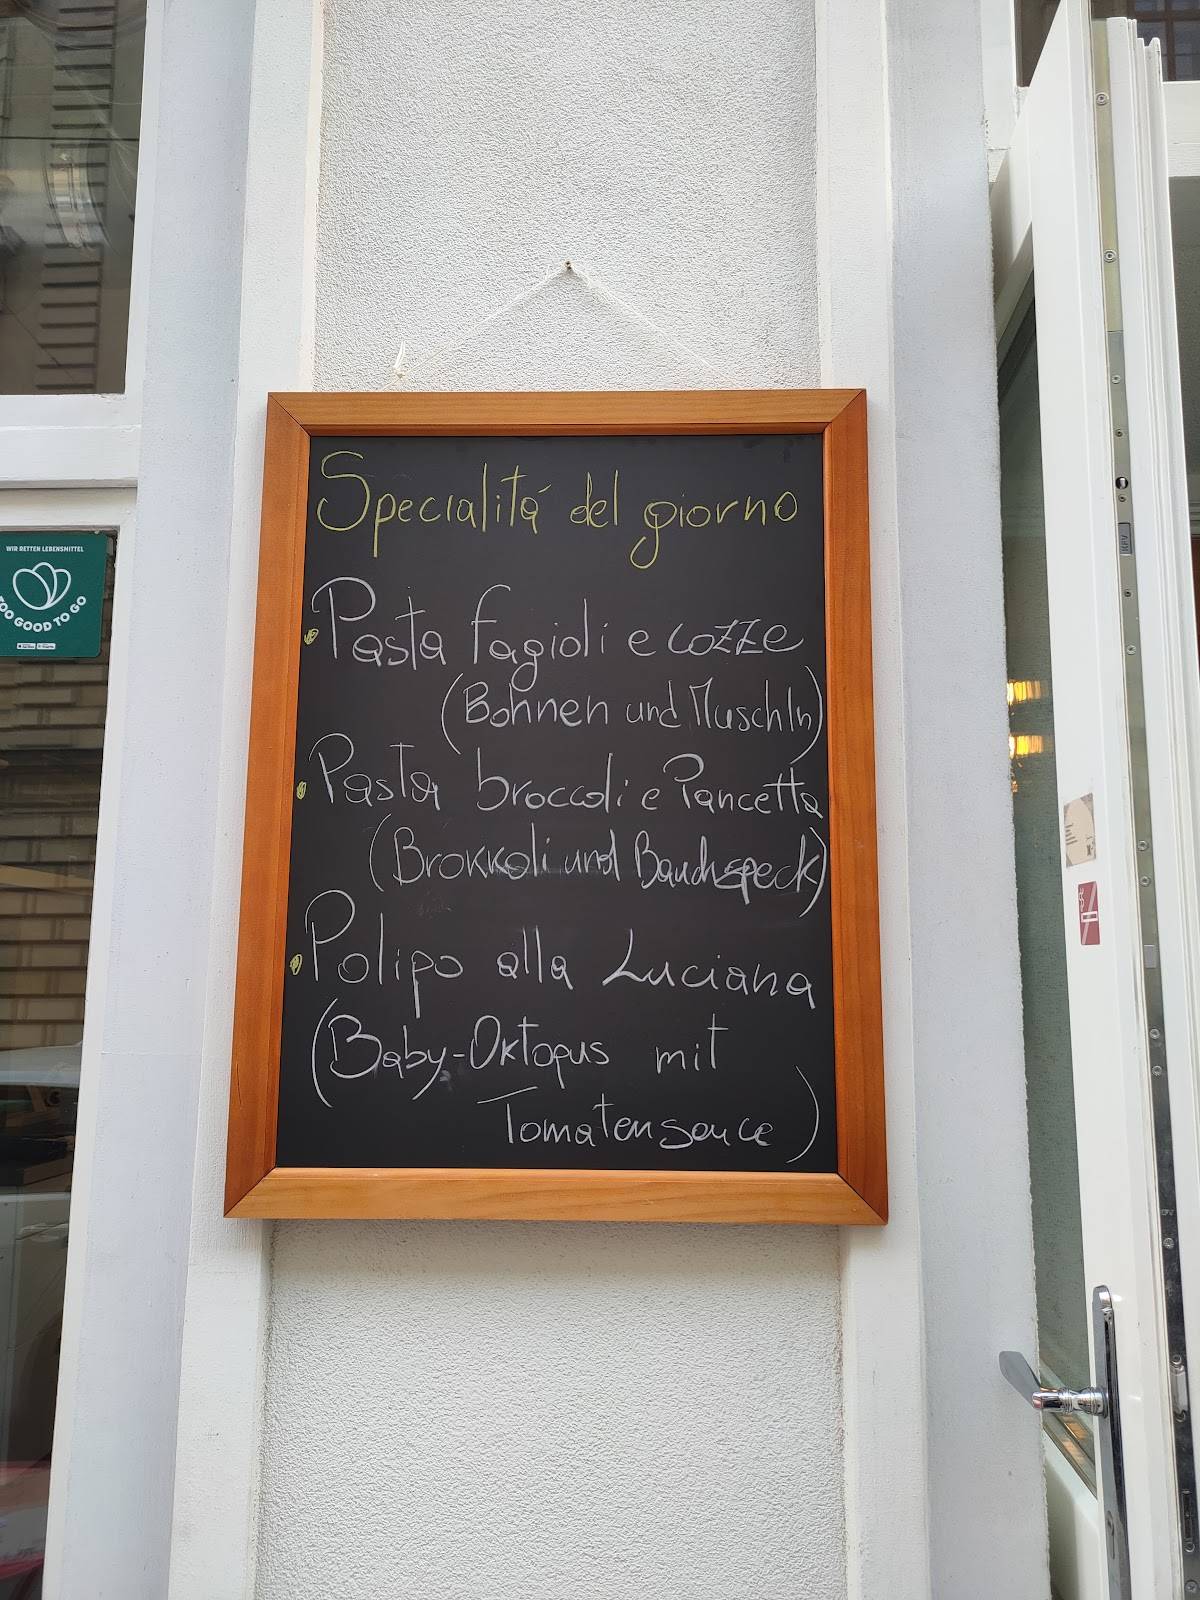 WIR RETTEN LEBENSMITTEL
TOO GOOD TO GO
Specialitá del giorno
Pasta fagioli e cozze
(Bohnen und Muschln)
Pasta broccoli e Pancetta
(Brokkoli und Bauchspeck)
Polipo alla Luciana
(Baby-Oktopus mit
Tomatensauce)
KFV